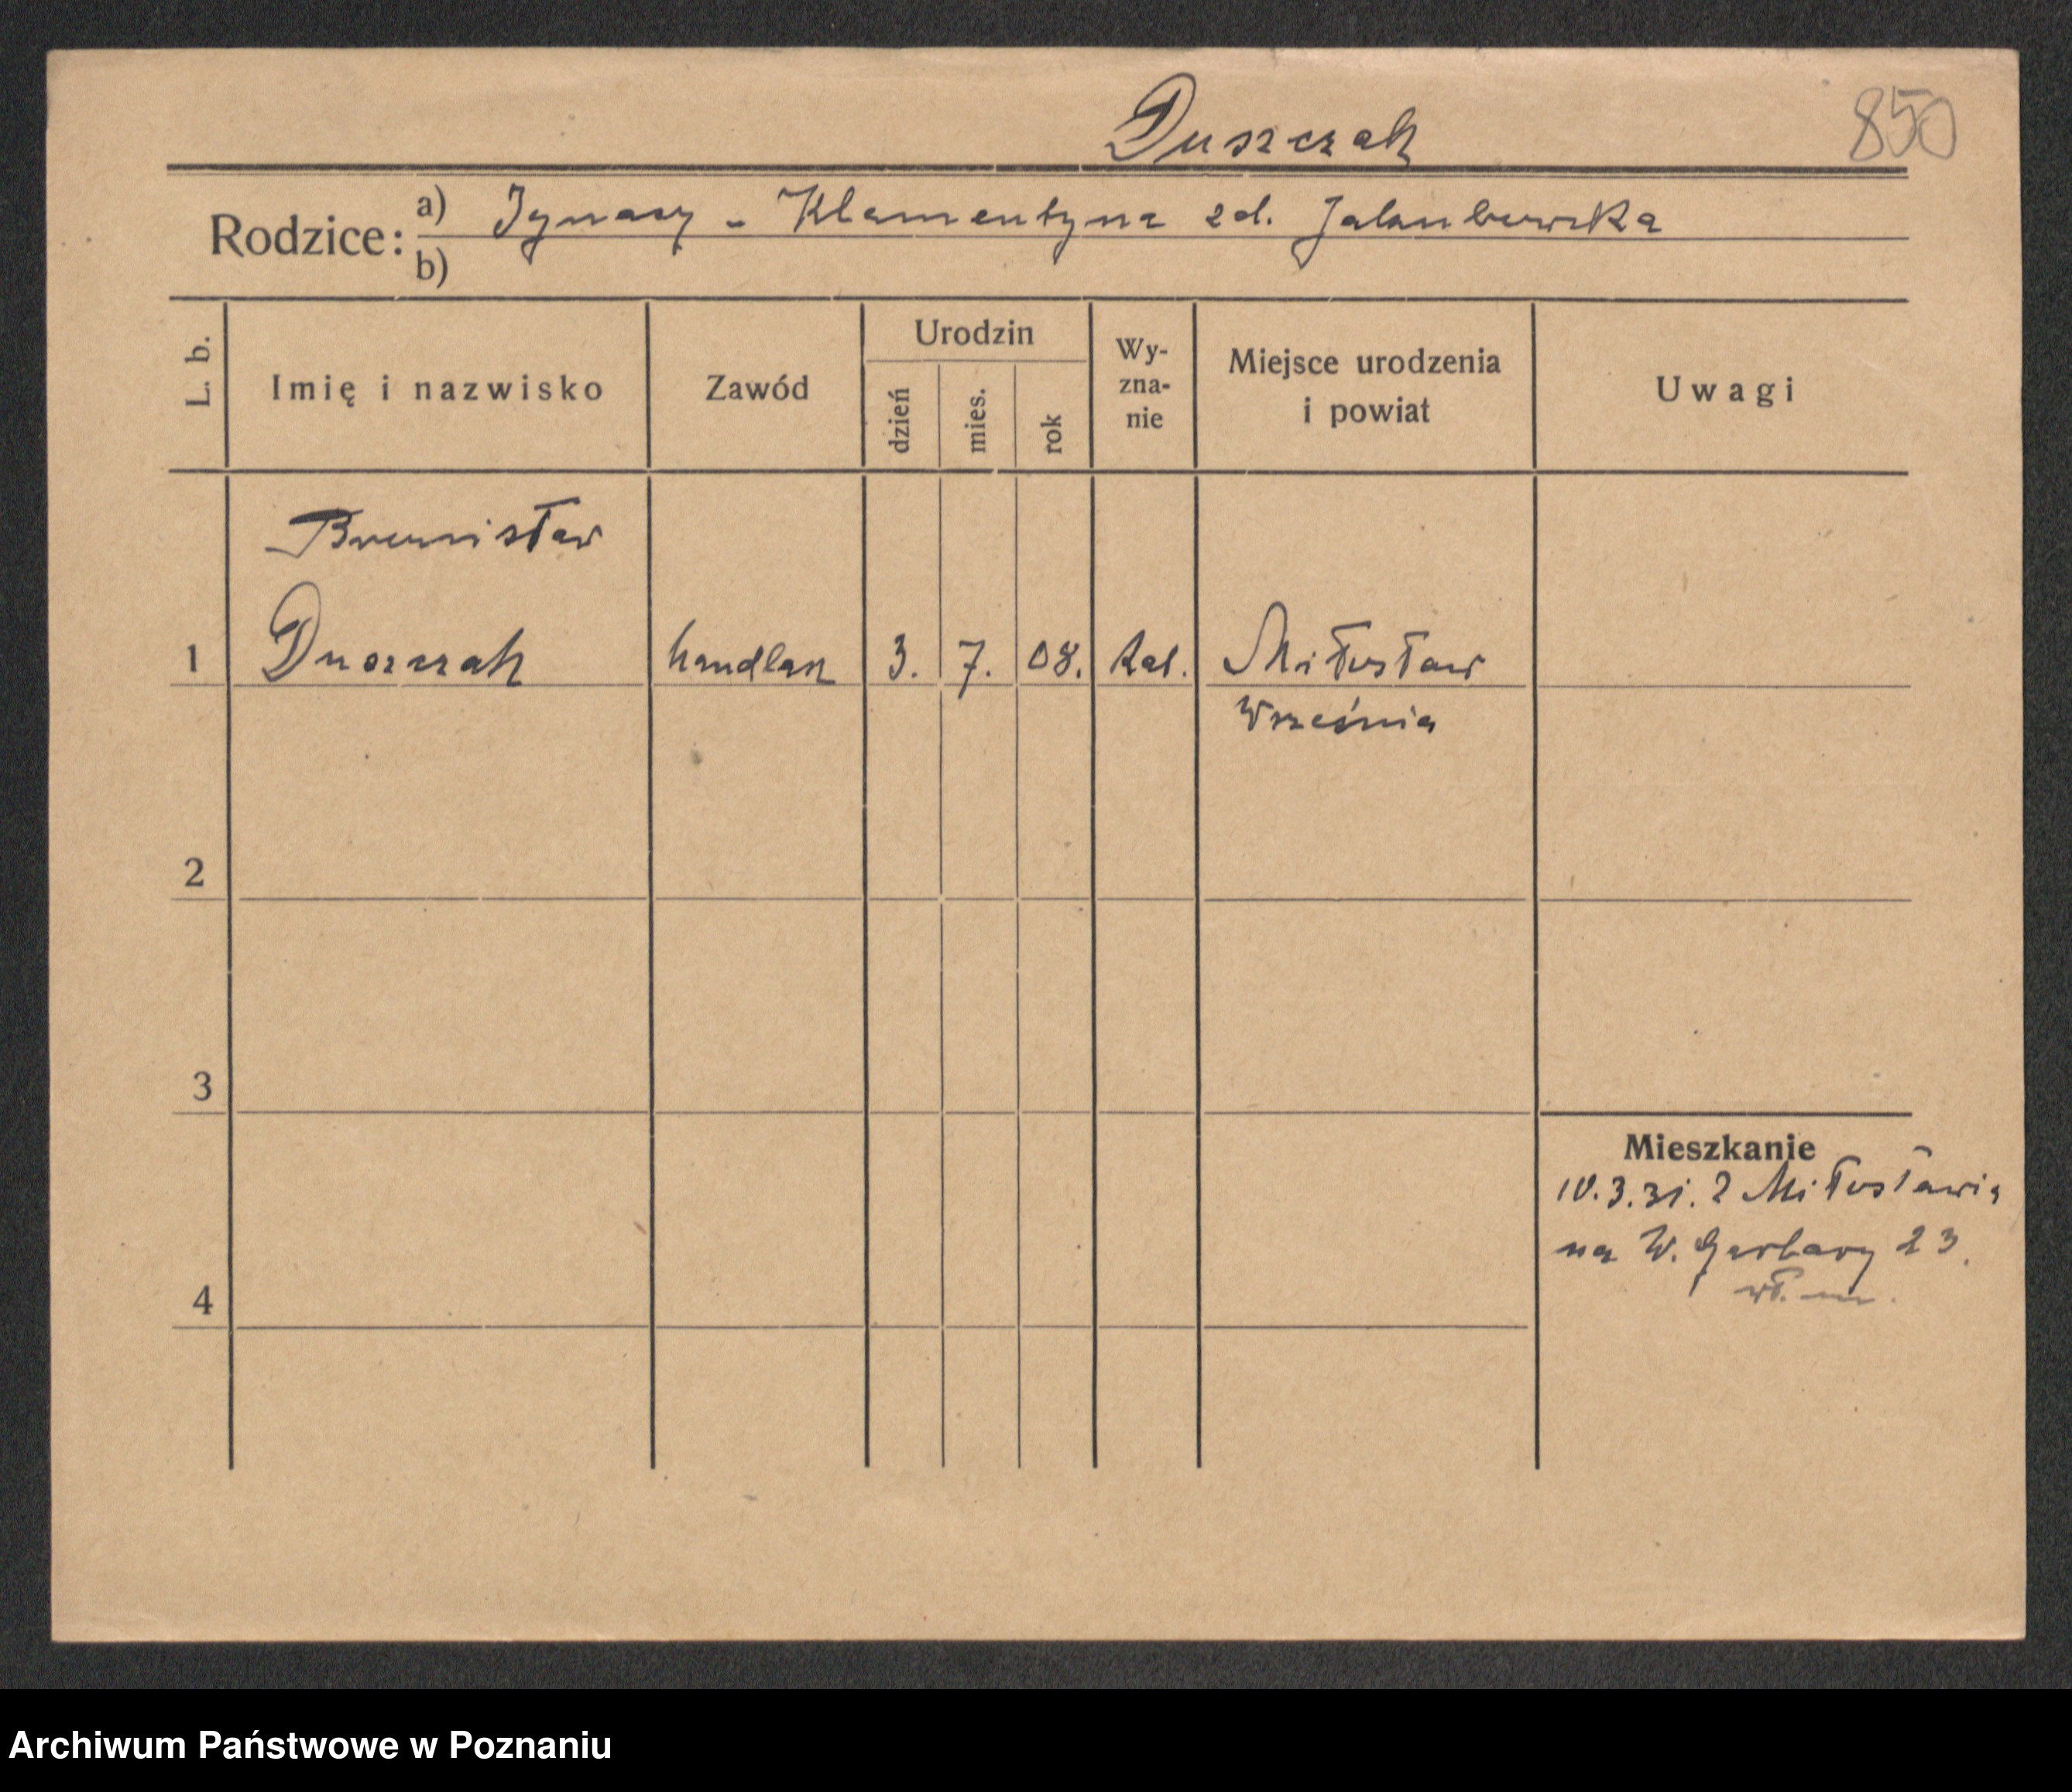 Duszczak
850
Rodzice:
a) Ignacy - Klementyna zd.
b)
L. b.
Imię i nazwisko
Zawód
Urodzin
dzień
mies.
rok
Wy-
zna-
nie
Miejsce urodzenia
i powiat
Uwagi
Bronisław
1 Duszczak handlarz 3. 7. 08. kat. Miłosław
Września
2
3
Mieszkanie
10.3.31. z Miłosławia
na W. Garbary 23.
4
Archiwum Państwowe w Poznaniu